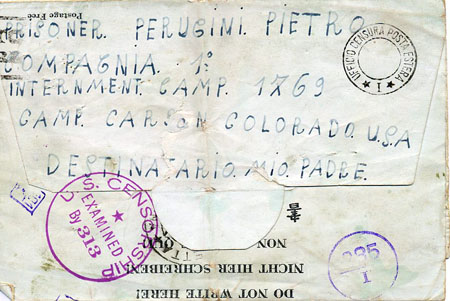 Postage Free
PRISONER. PERUGINI. PIETRO
COMPAGNIA. 1°
INTERNMENT. CAMP. 1769
CAMP. CARSON COLORADO. U.S.A
DESTINATARIO. MIO. PADRE.
UFFICIO CENSURA POSTA ESTERA
I
U.S. CENSORSHIP
EXAMINED
By 313
NON
NICHT HIER SCHREIBEN!
DO NOT WRITE HERE!
I